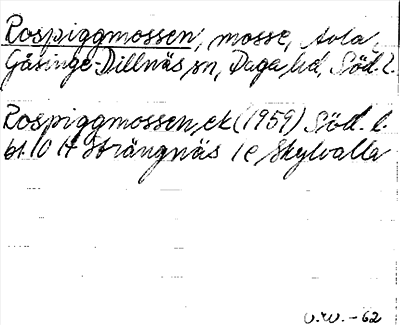 Rospiggmossen, mosse, Avla,
Gåsinge-Dillnäs sn, Daga hd, Söd. l.
Rospiggmossen, ek (1959) Söd. l.
bl. 10 H Strängnäs 1e Skylvalla
V.W. -62